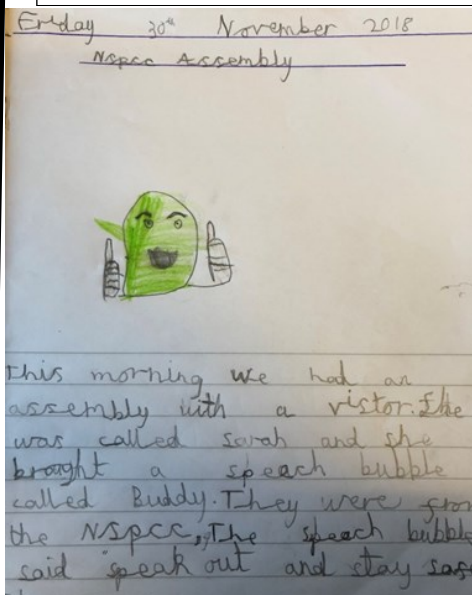 Friday 30th November 2018
Nspcc Assembly
this morning we had an
assembly with a vistor. She
was called sarah and she
brought a speech bubble
called Buddy. They were from
the NSPCC, The speech bubble
said speak out and stay safe